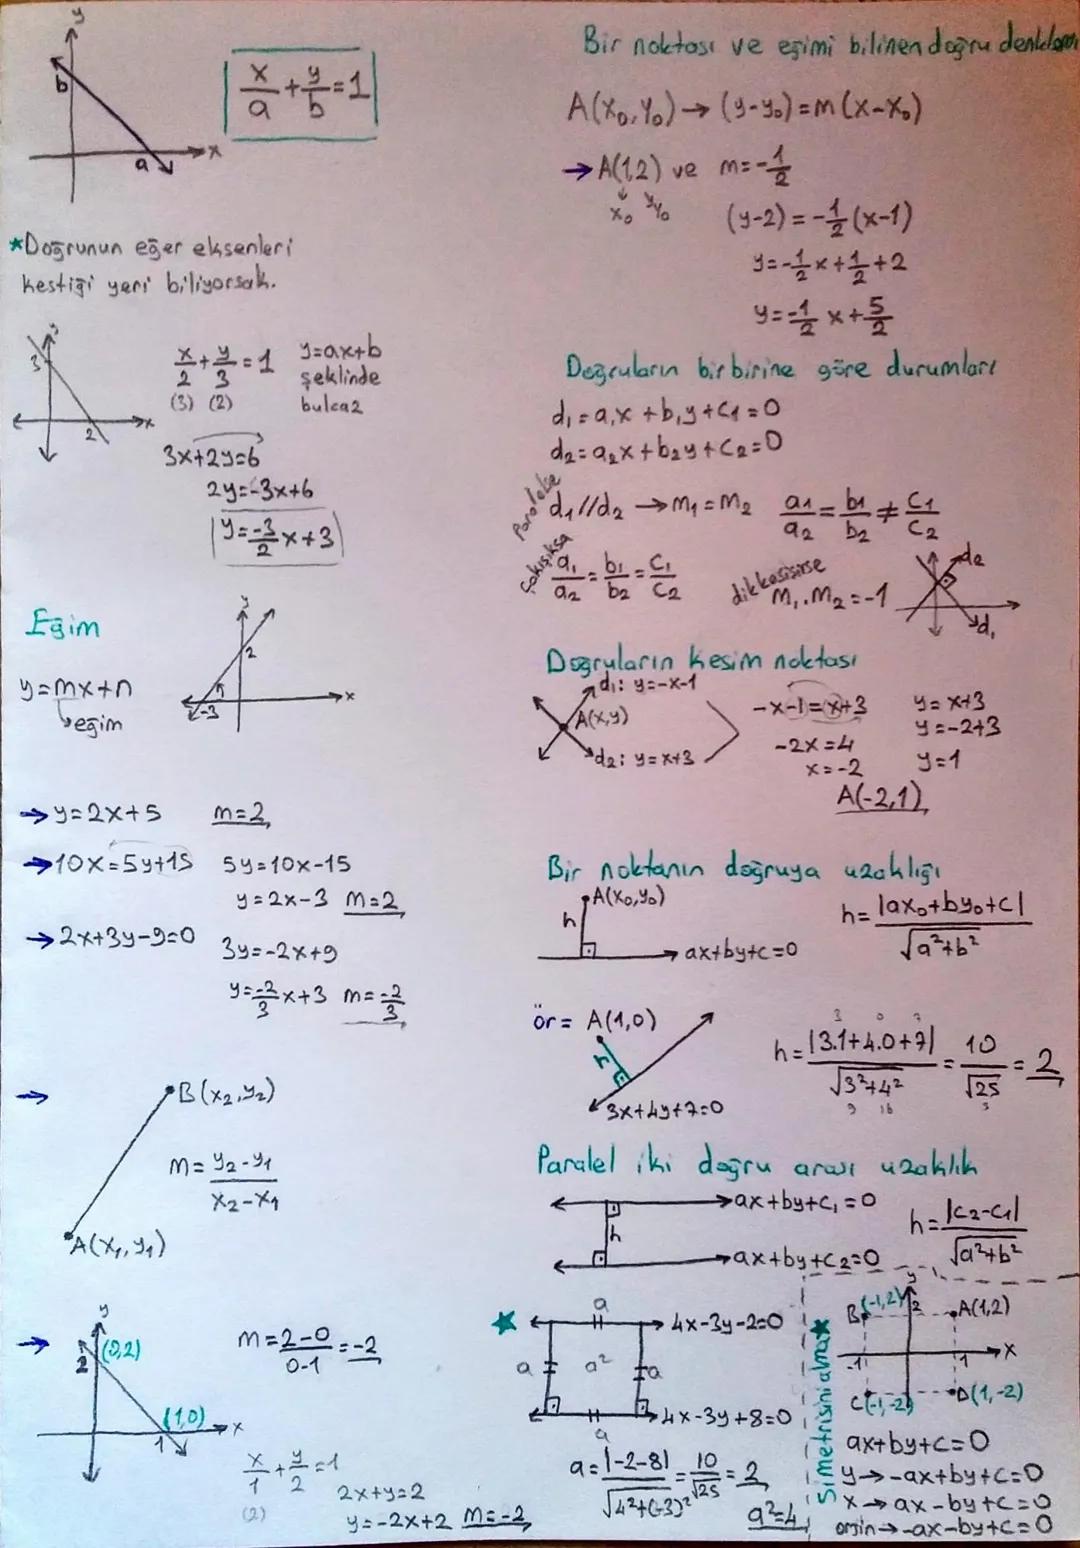 y
b
a
x
x/a + y/b = 1
*Doğrunun eğer eksenleri
kestiği yeri biliyorsak.
3
2
x
x/2 + y/3 = 1
(3) (2)
y=ax+b
şeklinde
bulcaz
3x+2y=6
2y=-3x+6
y=-3/2 x+3
Eğim
y=mx+n
eğim
y
2
-3
x
→ y=2x+5 m=2
→ 10x=5y+15 5y=10x-15
y=2x-3 m=2
→ 2x+3y-9=0 3y=-2x+9
y=-2/3 x+3 m=-2/3
→ B(x₂,y₂)
m= y₂-y₁ / x₂-x₁
A(x₁,y₁)
→ y
2 (0,2)
(1,0)
1
x
m= 2-0 / 0-1 = -2
x/1 + y/2 = 1
(2)
2x+y=2
y=-2x+2 m=-2
Bir noktası ve eğimi bilinen doğru denklemi
A(x₀,y₀) → (y-y₀)=m(x-x₀)
→ A(1,2) ve m=-1/2
x₀ y₀
(y-2)=-1/2(x-1)
y=-1/2 x+1/2+2
y=-1/2 x+5/2
Doğruların birbirine göre durumları
d₁=a₁x+b₁y+c₁=0
d₂=a₂x+b₂y+c₂=0
d₁//d₂ → m₁=m₂ a₁/a₂ = b₁/b₂ ≠ c₁/c₂
Çakışıksa
a₁/a₂ = b₁/b₂ = c₁/c₂
dik kesişirse
m₁.m₂=-1
d₂
d₁
Doğruların kesim noktası
d₁: y=-x-1
A(x,y)
d₂: y=x+3
-x-1=x+3
-2x=4
x=-2
y=x+3
y=-2+3
y=1
A(-2,1)
Bir noktanın doğruya uzaklığı
A(x₀,y₀)
h
ax+by+c=0
h= |ax₀+by₀+c| / √a²+b²
ör= A(1,0)
h
3x+4y+7=0
3 0 7
h= |3.1+4.0+7| / √3²+4² = 10/√25 = 2
9 16 5
Paralel iki doğru arası uzaklık
ax+by+c₁=0
h
ax+by+c₂=0
h= |c₂-c₁| / √a²+b²
★ a
4x-3y-2=0
a a² a
4x-3y+8=0
a
a= |-2-8| / √4²+(-3)² = 10/√25 = 2
a²=4
Simetrisini alma ★
y
B(-1,2) 2 A(1,2)
-1 1 x
C(-1,-2) D(1,-2)
ax+by+c=0
y→-ax+by+c=0
x→ax-by+c=0
orjin→-ax-by+c=0